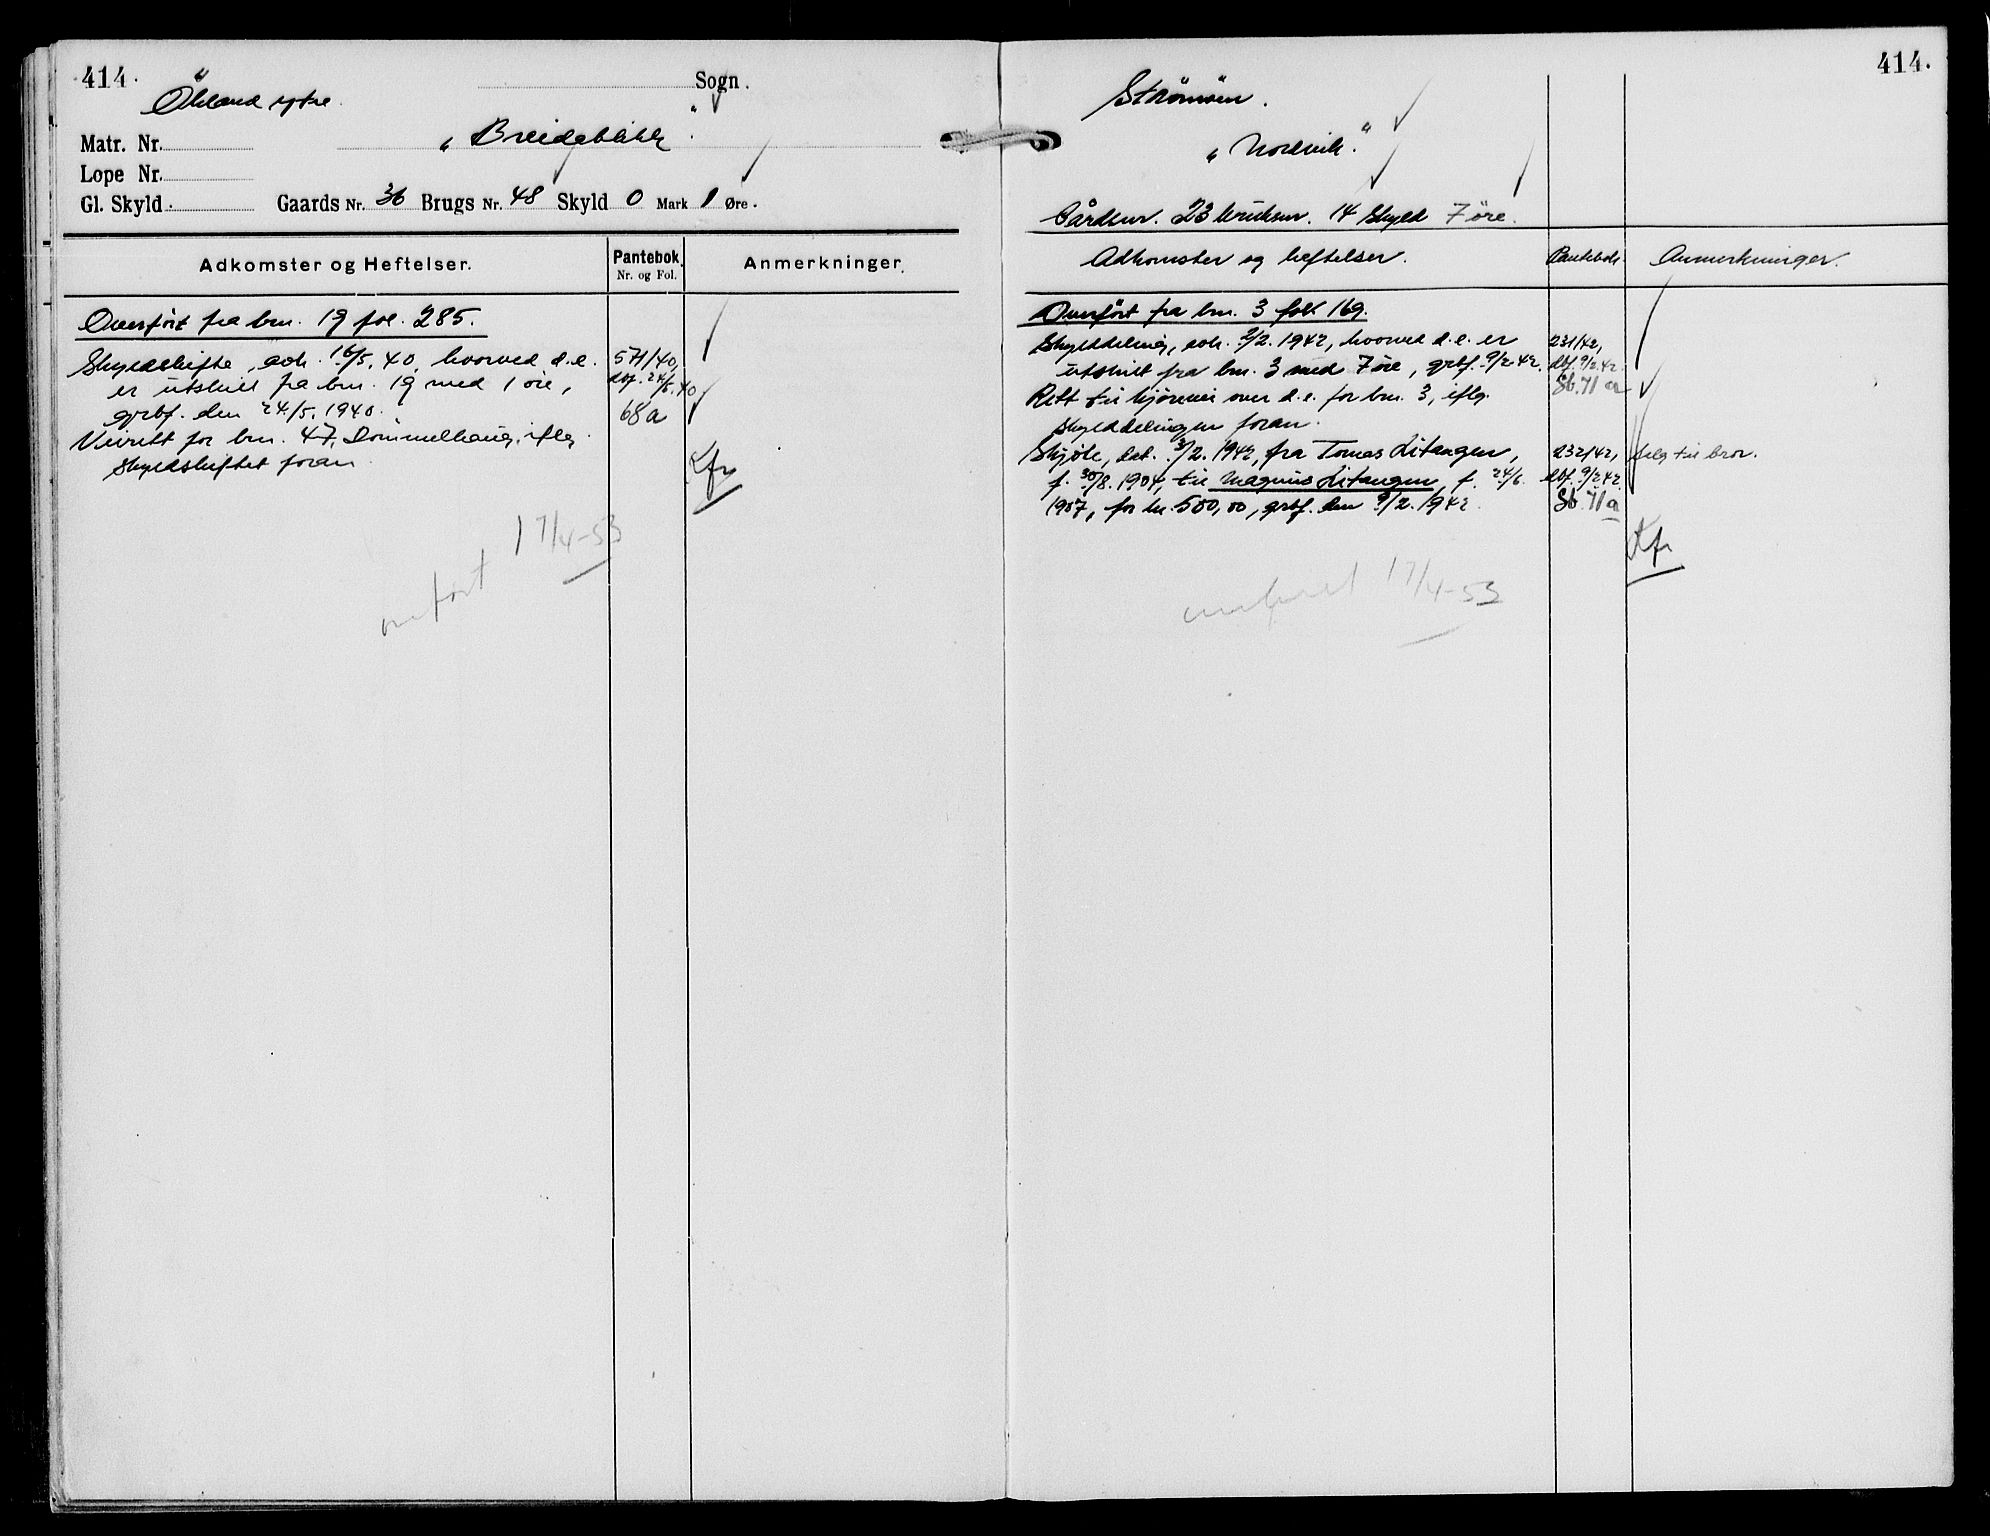 414.
Ökland ytre.
Sogn.
Matr. Nr.
"Breidablikk".
Lope Nr.
Gl. Skyld. Gaards Nr. 36 Brugs Nr. 48 Skyld 0 Mark 1 Øre.
Adkomster og Heftelser.
Pantebok.
Nr. og Fol.
Anmerkninger.
Overført fra bnr. 19 fol. 285.
Skyldskifte, avh. 16/5. 40, hvorved d.e.
er utskilt fra bnr. 19 med 1 øre,
grbf. den 24/5. 1940.
571/40,
dbf. 24/5. 40
68a
Veirett for bnr. 47, Dommelhaug, iflg.
skyldskiftet foran.
Kfr
omført 17/4-53
414.
Strömöen.
"Nordvik."
Gårdsnr. 23 bruksnr. 14 Skyld 7 øre.
Adkomster og heftelser.
Pantebok.
Anmerkninger.
Overført fra bnr. 3 fol. 169.
Skylddeling, avh. 2/2. 1942, hvorved d.e. er
utskilt fra bnr. 3 med 7 øre, grbf. 9/2 42.
231/42,
dbf. 9/2 42.
Sb. 71 a
Rett til kjørevei over d.e. for bnr. 3, iflg.
skylddelingen foran.
Skjøte, dat. 3/2. 1942, fra Tomas Litangen,
f. 30/8. 1904, til Magnus Litangen, f. 24/6.
1907, for kr. 500,00, grbf. den 9/2. 1942.
232/42,
dbf. 9/2 42.
Sb. 71 a
selg til bror.
Kfr
omført 17/4-53